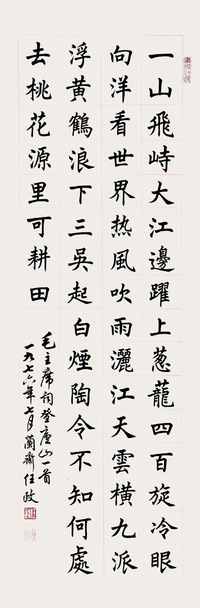 一山飛峙大江邊躍上葱蘢四百旋冷眼
向洋看世界热風吹雨灑江天雲横九派
浮黄鶴浪下三吳起白煙陶令不知何處
去桃花源里可耕田
毛主席詞登廬山一首
一九七六年七月蘭齋任政